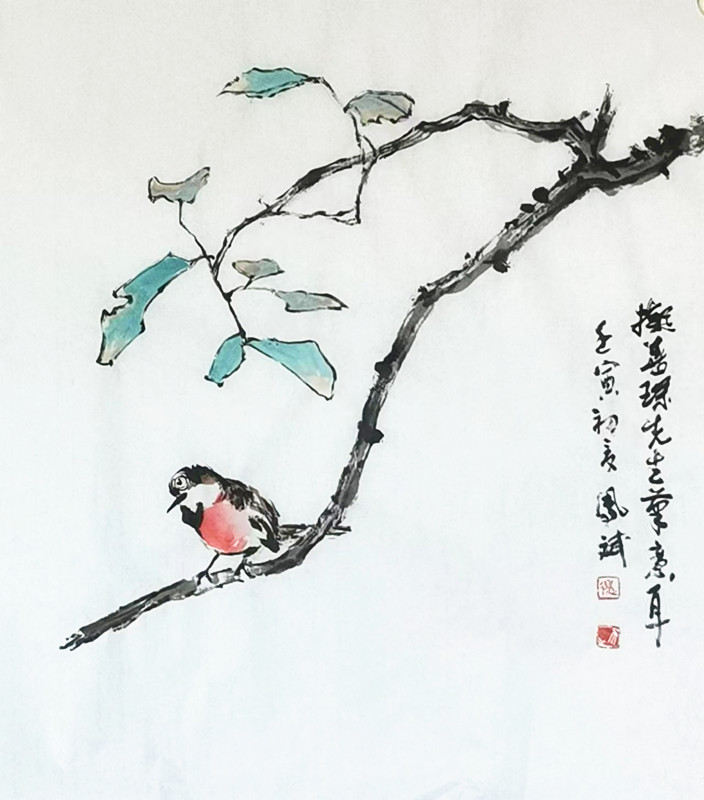 擬善琛先生筆意耳
壬寅初夏 鳳斌